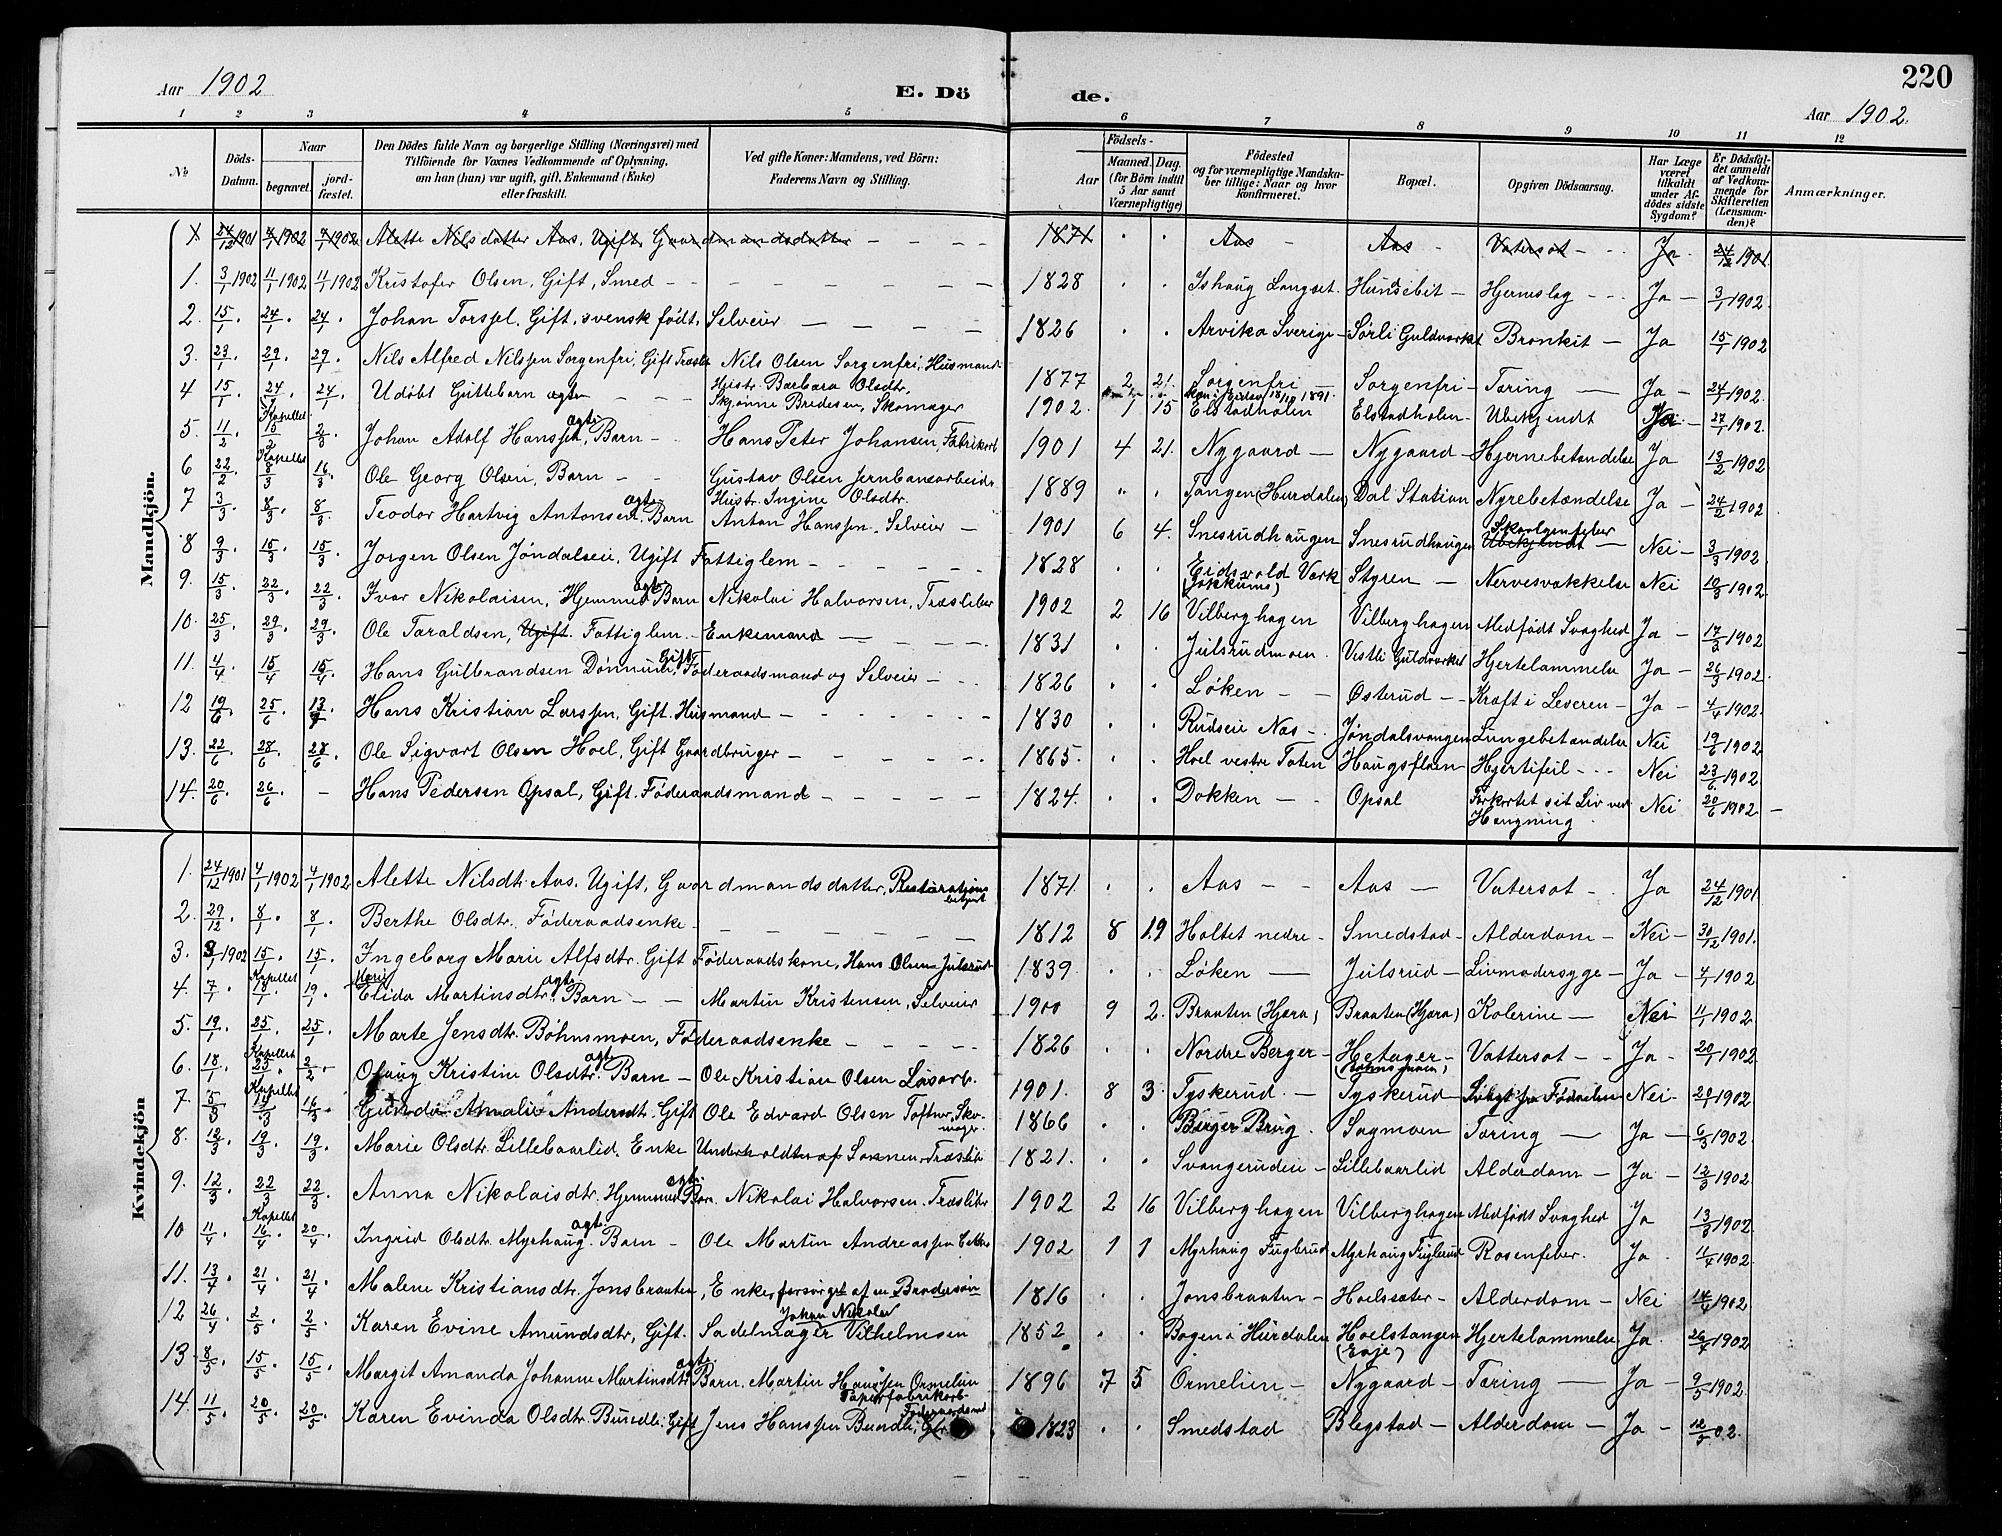 Aar 1902
E. Dö
de.
220
Aar 1902.
1 2 3 4 5 6 7 8 9 10 11 12
No
Döds-Datum.
Naar
begravet.
jord-fæstet.
Den Dödes fulde Navn og borgerlige Stilling (Næringsvei) med
Tilföiende for Voxnes Vedkommende af Oplysning,
om han (hun) var ugift, gift, Enkemand (Enke)
eller fraskilt.
Ved gifte Koner: Mandens, ved Börn:
Faderens Navn og Stilling.
Födsels-
Aar
Maaned. Dag.
(for Börn indtil
5 Aar samt
Værnepligtige)
Födested
og for værnepligtige Mandska-
ber tillige: Naar og hvor
konfirmeret.
Bopæl.
Opgiven Dödsaarsag.
Har Læge
været
tilkaldt
under Af-
dödes sidste
Sygdom?
Er Dödsfal-
det anmeldt
af Vedkom-
mende for
Skifteretten
(Lensman-
den)?
Anmærkninger.
Mandkjön.
1 24/12 1901 4/1 1902 4/1 1902 Alette Nilsdatter Aas, Ugift, Gaardmandsdatter 1871 Aas Aas Vatersot Ja 24/12 1901.
1. 3/1 1902 11/1 1902 11/1 1902 Kristofer Olsen, Gift, Smed 1828 Ishaug Langset. Hunsebit Hjerneslag Ja 3/1 1902
2. 15/1 24/1 24/1 Johan Torssel, Gift, svensk født, Selveier 1826 Arvika Sverige Sørli Guldverket Bronkit Ja 15/1 1902
3. 23/1 29/1 29/1 Nils Alfred Nilssen Sorgenfri, Gift Træsl. Nils Olsen Sorgenfri, Husmand 1877 2 21. Sorgenfri Sorgenfri Tæring Ja 24/1 1902.
4 15/1 24/1 24/1 Udøbt Guttebarn ægte Hustr. Barbara Olsdtr, Skjønne Bredesen, Skomager 1902. 1 15 Elstadholen Elstadholen Ubekjendt Nei 27/1 1902.
5. 11/2 Kapellet 2/3 Johan Adolf Hanssen, ægte Barn Hans Peter Johansen, Fabrikarb 1901 4 21. Nygaard Nygaard Hjernebetændelse Ja 13/2 1902
6 22/2 Kapellet 8/3 16/3 Ole Georg Olsen, Barn Gustav Olsen Jernbanearbeider 1889 Tangen (Hurdalen) Dal Station Nyrebetændelse Ja 24/2 1902
7 3/3 8/3 8/3 Teodor Hartvig Antonsen ægte Barn Hustr. Ingine Olsdtr. Anton Hanssen, Selveier 1901 6 4. Snesrudhaugen Snesrudhaugen Skarlagensfeber Ubekjendt Nei 3/3 1902.
8 9/3 15/3 15/3 Jorgen Olsen Jøndalseie, Ugift Fattiglem 1828 Eidsvold Værk Styren Nervesvækkelse Nei 10/3 1902.
9. 15/3 22/3 22/3 Ivar Nikolaisen, Hjemmed. ægte Barn Nikolai Halvorsen, Træsliber 1902 2 16 Vilberghagen Vilberghagen Medfødt Svaghed Ja 17/3 1902
10. 25/3 29/3 29/3 Ole Taraldsen, Ugift. Fattiglem. Enkemand 1831 Julsrudmoen Vestli Guldverket Hjertelammelse Ja 26/3 1902.
11. 4/4 15/4 15/4 Hans Gulbrandsen Dønnum, Gift Føderaadsmand og Selveier 1826 Løken Østerud Kræft i Leveren Ja 4/4 1902.
12 19/6 25/6 13/7 Hans Kristian Larssen, Gift. Husmand 1830 Rudseie Næs Jøndalsvangen Lungebetændelse Nei 19/6 1902
13. 22/6 28/6 28/6 Ole Sigvart Olsen Hoel, Gift Gaardbruger 1865. Hoel vestre Toten Haugsflaen Hjertefeil Nei 23/6 1902
14. 20/6 26/6 – Hans Pedersen Opsal, Gift. Føderaadsmand 1824. Dokken Opsal Forkortet sit Liv ved Hængning Nei 20/6 1902
Kvindekjön
1. 24/12 1901 4/1 1902 4/1 1902 Alette Nilsdtr. Aas, Ugift, Gaardmandsdatter, Restorations betjent 1871. Aas Aas Vatersot Ja 24/12 1901
2. 29/12 8/1 8/1 Berthe Olsdtr. Føderaadsenke 1812 8 19 Holtet nedre Smedstad Alderdom Nei 30/12 1901.
3. 3/1 1902 15/1 15/1 Ingeborg Marie Alfsdtr. Gift Føderaadskone, Hans Olsen Julsrud 1839. Løken Julsrud Livmodersyge Ja 4/1 1902
4. 7/1 Kapellet 19/1 Marie Elida Martinsdtr. ægte Barn Martin Kristensen, Selveier 1900 9 2. Braaten (Hjæra) Braaten (Hjæra) Kolerine Nei 11/1 1902.
5. 19/1 25/1 25/1 Marte Jensdtr. Bøhnsmoen, Føderaadsenke 1826 Nordre Berger Hetager (Bøhnsmoen) Vattersot Ja 20/1 1902
6. 18/1 Kapellet 23/1 2/2 Olaug Kristine Olsdtr. ægt. Barn Ole Kristian Olsen Løsarb. 1901. 8 3. Tyskerud Tyskerud Svagt fra Fødselen Nei 20/1 1902
7. 5/3 Kapellet 16/3 Gunda Amalie Andersdt. Gift Ole Edvard Olsen Toftner, Skomager. 1866 Birger Brug Sagmoen Tæring Ja 6/3 1902.
8. 12/3 19/3 19/3 Marie Olsdtr. Lillebaarlid. Enke Underholdt af Sønnen Træsliber 1821. Svangerudeie Lillebaarlid Alderdom Ja 12/3 1902
9. 12/3 22/3 22/3 Anna Nikolaisdtr. Hjemmed. ægte. Barn. Nikolai Halvorsen. Træsliber 1902 2 16 Vilberghagen Vilberghagen Medfødt Svaghed Ja 13/3 1902
10 11/4 Kapellet 16/4 20/4 Ingrid Olsdtr. Myrhaug. ægt. Barn Ole Martin Andreassen 1902 1 1 Myrhaug Fuglerud Myrhaug Fuglerud Rosenfeber. Ja 11/4 1902.
11. 13/4 21/4 21/4 Malene Kristiansdtr. Jonsbraaten, Enke, forsørget af en Brodersøn 1816 Jonsbraaten Hoelssæter Alderdom Nei 14/4 1902.
12 26/4 2/5 2/5 Karen Evine Amundsdtr, Gift. Sadelmager Johan Nikolai Vilhelmsen 1852 Bagen i Hurdalen Hoelstangen (Eneje) Hjertelammelse Ja 26/4 1902
13 8/5 15/5 15/5 Margit Amanda Johanne Martinsdtr. ægt. Barn. Martin Hanssen Ormelien Papirfabrikarb. 1896 7 5 Ormelien Nygaard Tæring Ja 9/5 1902.
14. 11/5 20/5 20/5 Karen Evinda Olsdtr. Bundli. Gift Jens Hanssen Bundli, Føderaadsmd 1823 Smedstad Blegstad Alderdom Ja 12/5 02.